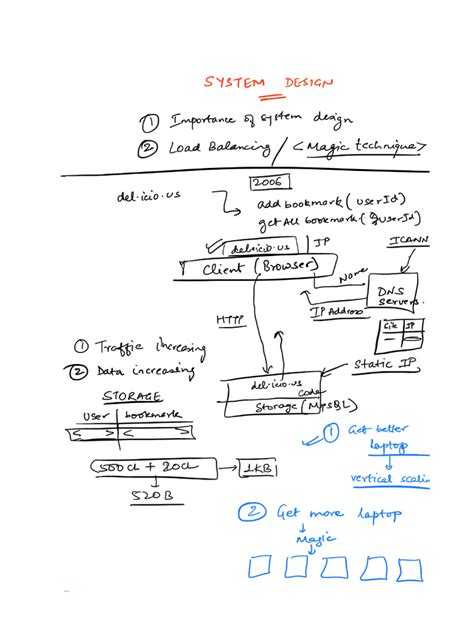 SYSTEM DESIGN
① Importance of system design
② Load Balancing / <Magic technique>
2006
del.icio.us
add bookmark (userId)
get All bookmark (userId)
del.icio.us IP
ICANN
Client (Browser)
Name
DNS
servers.
IP Address
Site IP
HTTP
① Traffic increasing
② Data increasing
Static IP
del.icio.us
code
STORAGE
Storage (MySQL)
user bookmark
< > < >
① Get better
laptop
500ch + 20ch → 1KB
vertical scalin
520B
② Get more laptop
Magic